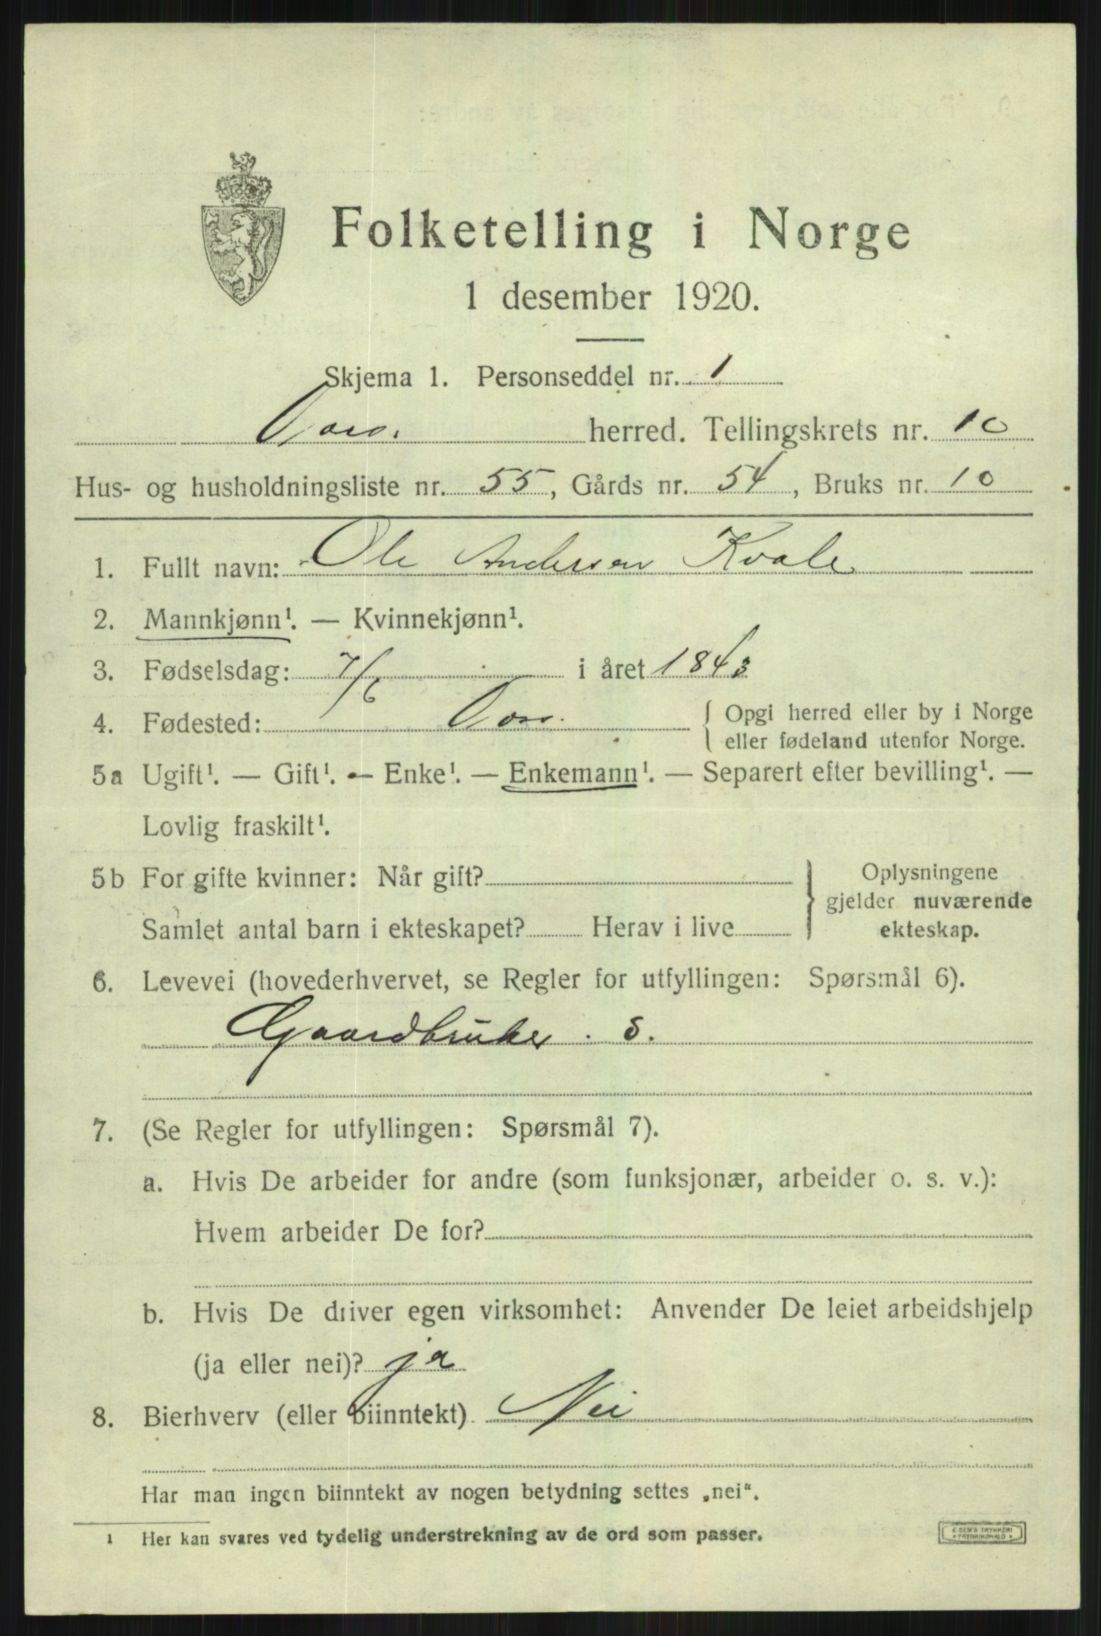 Folketelling i Norge
1 desember 1920.
Skjema 1. Personseddel nr. 1
Voss. herred. Tellingskrets nr. 10
Hus- og husholdningsliste nr. 55, Gårds nr. 54, Bruks nr. 10
1. Fullt navn: Ole Andersen Kvale
2. Mannkjønn¹. — Kvinnekjønn¹.
3. Fødselsdag: 7/6 i året 1843
4. Fødested: Voss. { Opgi herred eller by i Norge
eller fødeland utenfor Norge.
5a Ugift¹. — Gift¹. — Enke¹. — Enkemann¹. — Separert efter bevilling¹. —
Lovlig fraskilt¹.
5b For gifte kvinner: Når gift? } Oplysningene
gjelder nuværende
Samlet antal barn i ekteskapet? Herav i live ekteskap.
6. Levevei (hovederhvervet, se Regler for utfyllingen: Spørsmål 6).
Gaardbruker. S.
7. (Se Regler for utfyllingen: Spørsmål 7).
a. Hvis De arbeider for andre (som funksjonær, arbeider o. s. v.):
Hvem arbeider De for?
b. Hvis De driver egen virksomhet: Anvender De leiet arbeidshjelp
(ja eller nei)? ja
8. Bierhverv (eller biinntekt) Nei
Har man ingen biinntekt av nogen betydning settes „nei".
1 Her kan svares ved tydelig understrekning av de ord som passer.